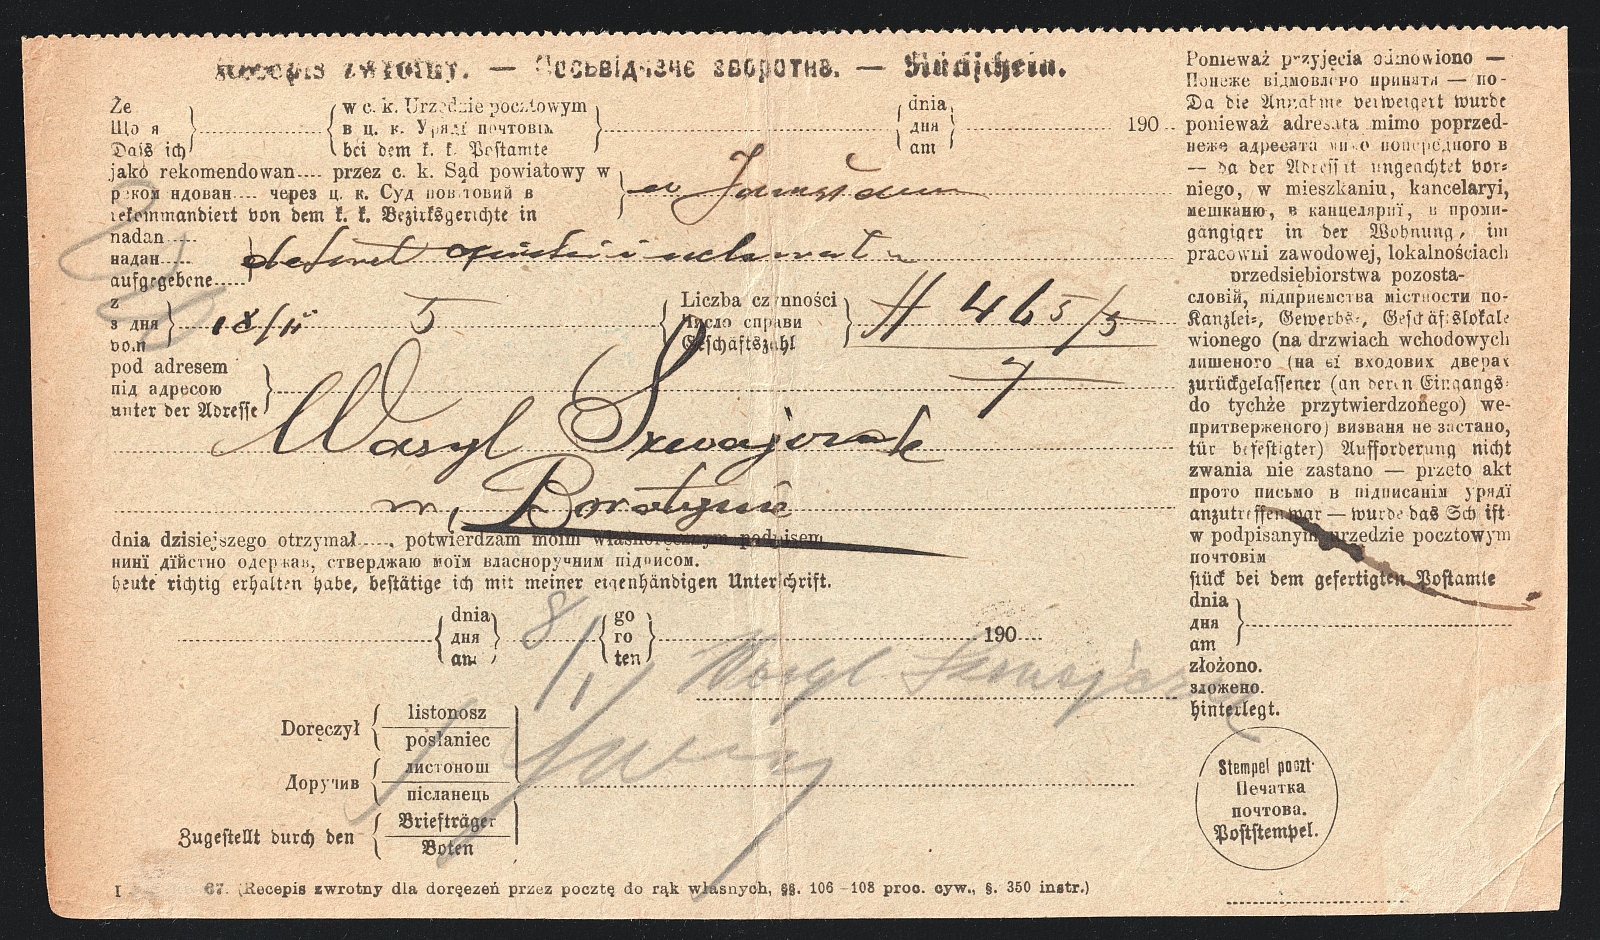 Recepis zwrotny. — Посьвідченє зворотнє. — Rückschein.
Że
Що я
Daß ich
w c. k. Urzędzie pocztowym
в ц. к. Урядї почтовім
bei dem k. k. Postamte
dnia
дня
am
190
jako rekomendowan.... przez c. k. Sąd powiatowy w
рекомендован.... через ц. к. Суд повітовий в
rekommandiert von dem k. k. Bezirksgerichte in
w
nadan
надан
aufgegebene
z
з дня
vom
18/II 5
Liczba czynności
Число справи
Geschäftszahl
H 465/5
7
pod adresem
під адресою
unter der Adresse
Wasyl
w
dnia dzisiejszego otrzymał....., potwierdzam moim własnoręcznym podpisem
нинї дїйстно одержав, стверджаю моїм власноручним підписом.
heute richtig erhalten habe, bestätige ich mit meiner eigenhändigen Unterschrift.
dnia
дня
am
8/
go
го
ten
190
Wasyl
Doręczył
listonosz
posłaniec
Доручив
листонош
післанець
Zugestellt durch den
Briefträger
Boten
67. (Recepis zwrotny dla doręczeń przez pocztę do rąk własnych, §§. 106—108 proc. cyw., §. 350 instr.)
Ponieważ przyjęcia odmówiono —
Понеже відмовлено принятя — по-
Da die Annahme verweigert wurde
ponieważ adresata mimo poprzed-
неже адресата мимо попередного в
— da der Adressat ungeachtet vor-
niego, w mieszkaniu, kancelaryi,
мешканю, в канцелярії, в проми-
gängiger in der Wohnung, im
pracowni zawodowej, lokalnościach
przedsiębiorstwa pozosta-
словій, підприємства містности по-
Kanzlei-, Gewerbs-, Geschäftslokale
wionego (na drzwiach wchodowych
лишеного (на єї входових дверах
zurückgelassener (an deren Eingangs-
do tychże przytwierdzonego) we-
притверженого) визваня не застано,
tür befestigter) Aufforderung nicht
zwania nie zastano — przeto akt
прото письмо в підписанім урядї
anzutreffen war — wurde das Schrift-
w podpisanym urzędzie pocztowym
почтовім
stück bei dem gefertigten Postamte
dnia
дня
am
złożono.
зложено.
hinterlegt.
Stempel poczt.
Печатка
почтова.
Poststempel.